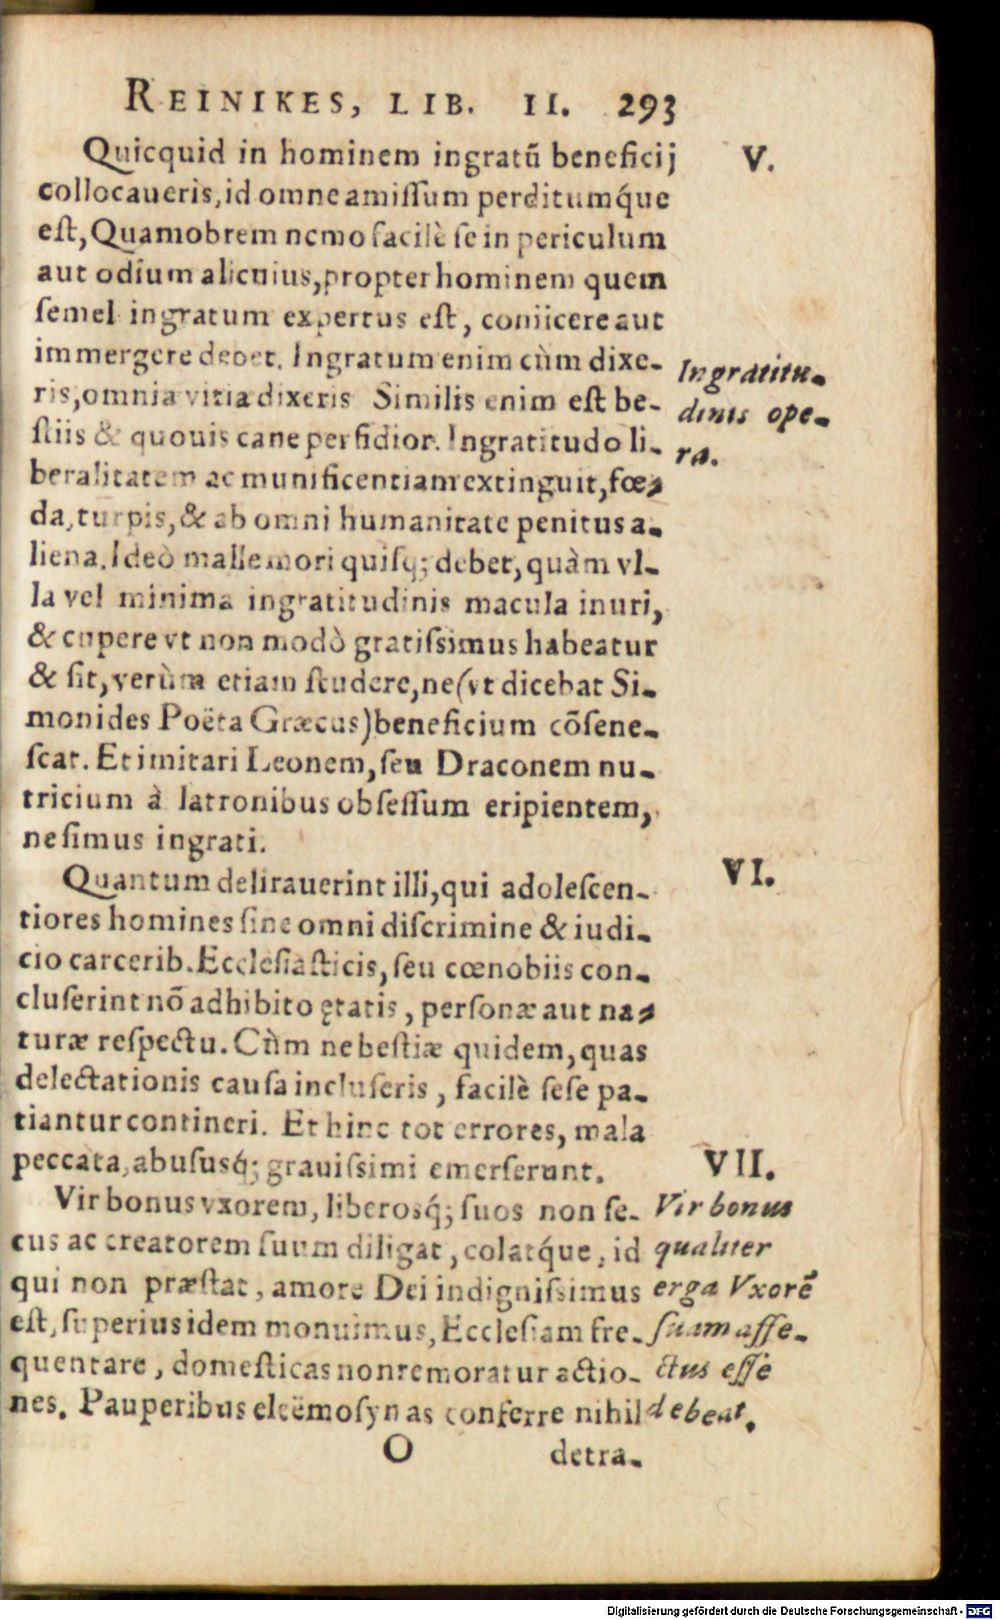 REINIKES, LIB. II. 293
Quicquid in hominem ingratū beneficij
V.
collocaueris, id omne amiſſum perditumq́ue
eſt, Quamobrem nemo facilè ſe in periculum
aut odium alicuius, propter hominem quem
ſemel ingratum expertus eſt, coniicere aut
immergere debet. Ingratum enim cùm dixe-
ris, omnia vitia dixeris Similis enim eſt be-
ſtiis & quouis cane perfidior. Ingratitudo li-
beralitatem ac munificentiam extinguit, fœ-
da, turpis, & ab omni humanitate penitus a-
liena. Ideò malle mori quiſq; debet, quàm vl-
la vel minima ingratitudinis macula inuri,
& cupere vt non modò gratiſsimus habeatur
& ſit, verùm etiam ſtudere, ne (vt dicebat Si-
monides Poëta Græcus) beneficium cōſene-
ſcat. Et imitari Leonem, ſeu Draconem nu-
tricium à latronibus obſeſſum eripientem,
ne ſimus ingrati.
Ingratitu-
dinis ope-
ra.
Quantum delirauerint illi, qui adoleſcen-
VI.
tiores homines ſine omni diſcrimine & iudi-
cio carcerib. Eccleſiaſticis, ſeu cœnobiis con-
cluſerint nō adhibito ętatis, perſonæ aut na-
turæ reſpectu. Cùm ne beſtiæ quidem, quas
delectationis cauſa incluſeris, facilè ſeſe pa-
tiantur contineri. Et hinc tot errores, mala
peccata, abuſusq́; grauiſsimi emerſerunt.
VII.
Vir bonus vxorem, liberosq́; ſuos non ſe-
cus ac creatorem ſuum diligat, colatq́ue, id
qui non præſtat, amore Dei indigniſsimus
eſt, ſuperius idem monuimus, Eccleſiam fre-
quentare, domeſticas non remoratur actio-
nes. Pauperibus eleëmoſynas conferre nihil
Vir bonus
qualiter
erga Vxorē
ſuam affe-
ctus eſſe
debeat.
O
detra-
Digitalisierung gefördert durch die Deutsche Forschungsgemeinschaft - DFG